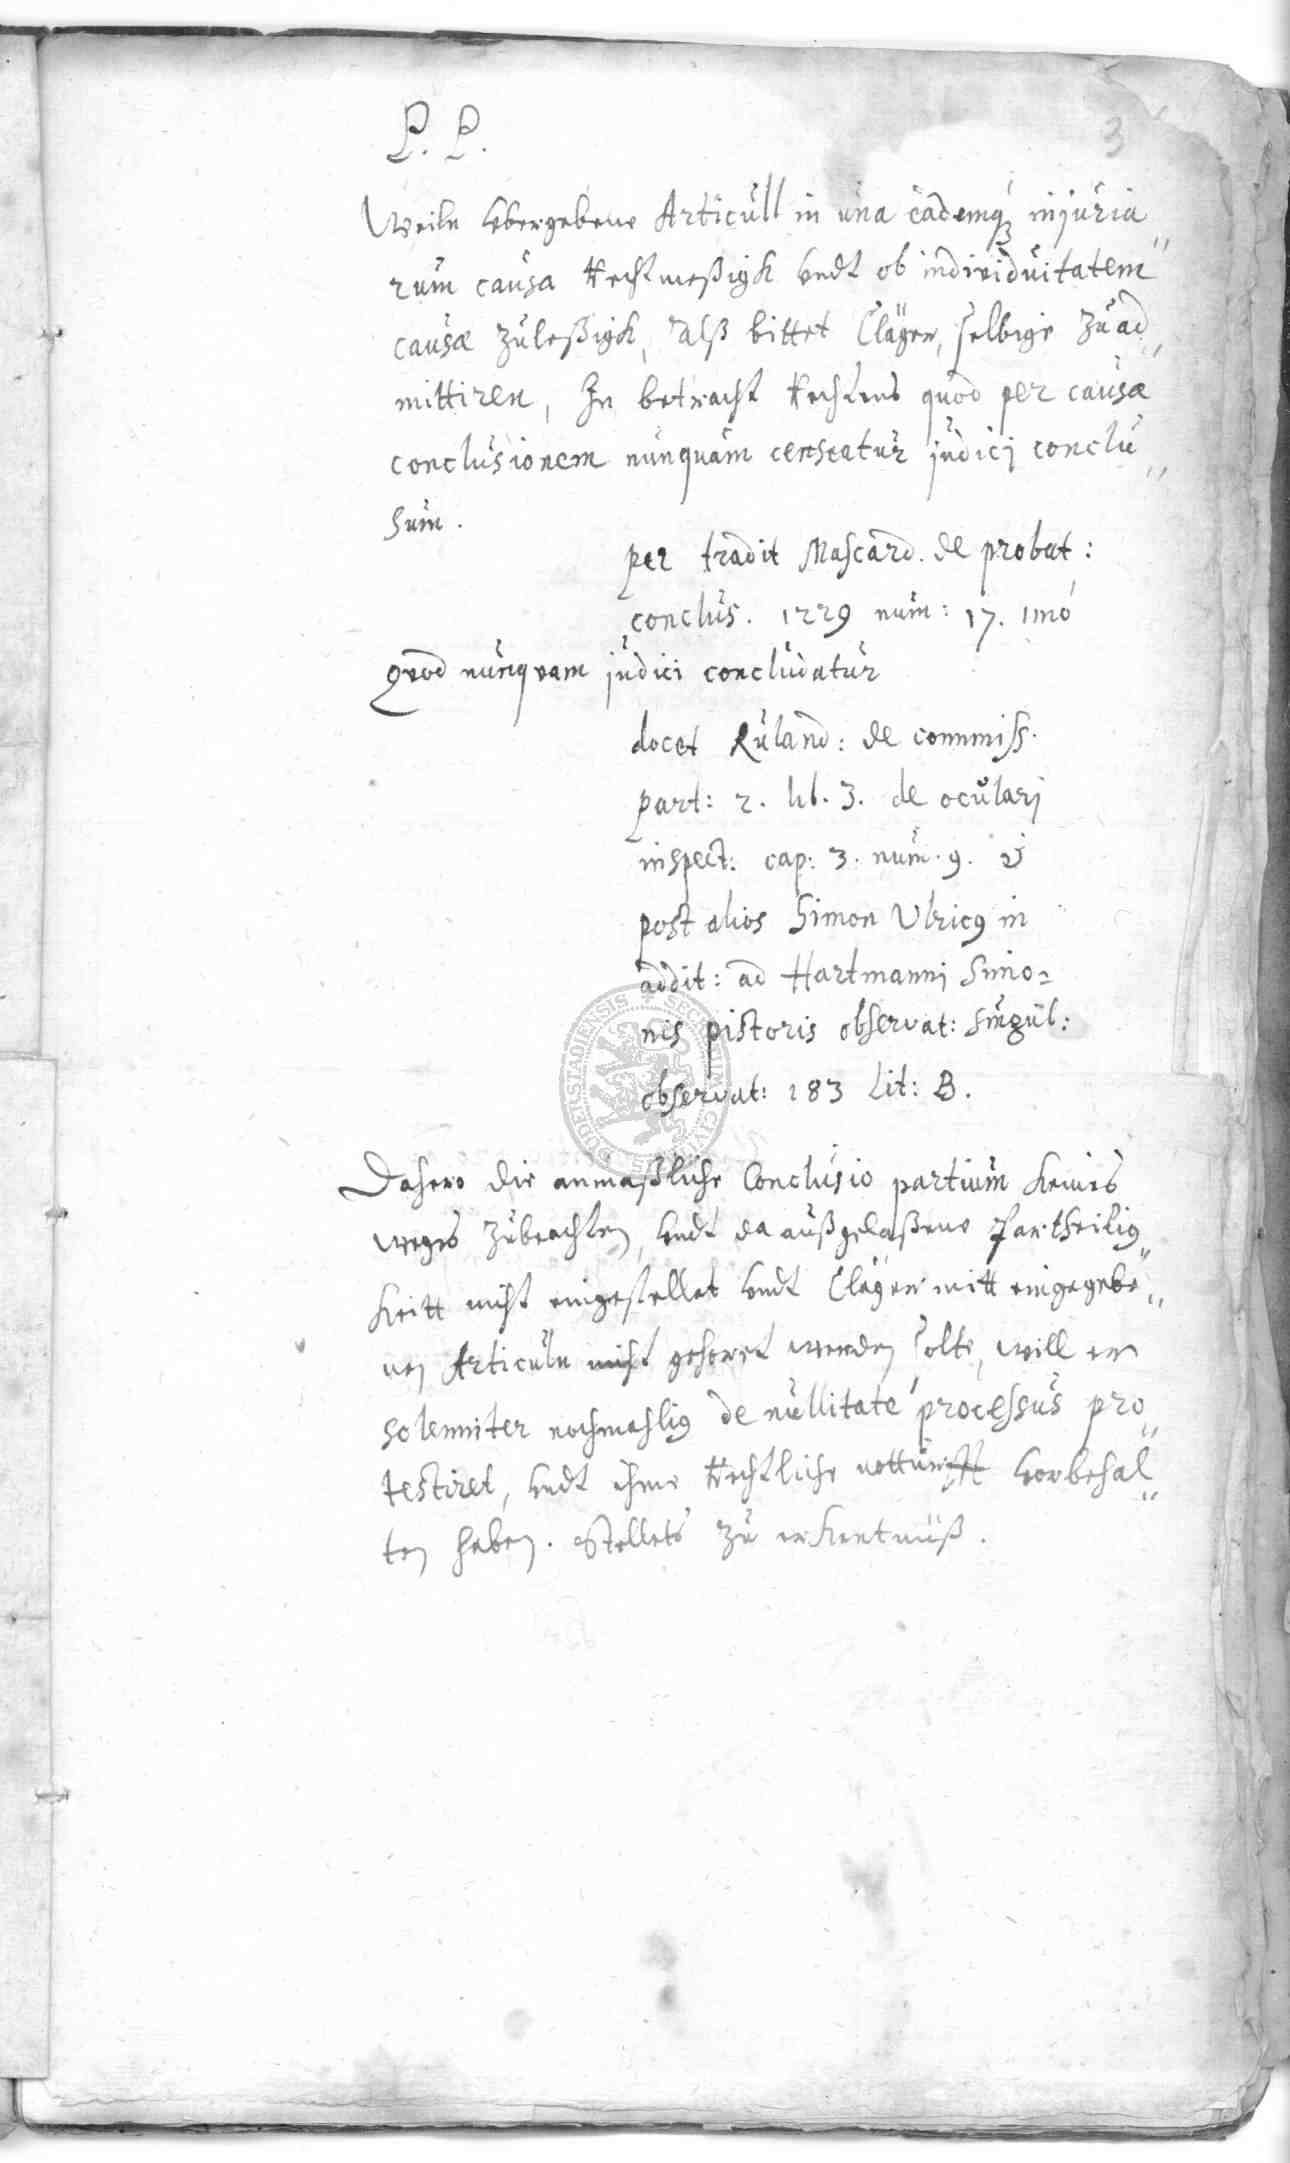 P. P.
3
Weiln vbergebene Articull in una eademq injuria„
rum causa Rechtmeßigk vndt ob individuitatem
causæ zuleßigk, Alß bittet Cläger, selbige zu ad„
mittiren, In betracht Rechtens quod per causæ
conclusionem nunquam censeatur judici conclu„
sum.
per tradit Mascard. de probat:
conclus. 1229 num: 17. imò
quod nunquam judici concludatur
docet Ruland: de commiss.
part: 2. lib. 3. de oculari
inspect: cap: 3. num. 9. &
post alios Simon Ulricq in
addit: ad Hartmanni Simo=
nis pistoris observat: singul:
observat: 183 Lit: B.
Dahero die anmaßliche Conclusio partium keines
weges zubeachten, vndt da außgelaßene Partheilig„
keitt nicht eingestellet vndt Cläger mitt eingegebe„
nen Articuln nicht gehöret werden solte, will er
solenniter nochmahlig de nullitate processus pro„
testiret, vndt ihme Rechtliche notturfft vorbehal„
ten haben. Stellets zu erkentnüß.
SECRETUM CIVI DUDERSTADIENSIS